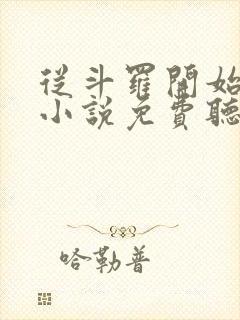 從斗羅開始
小說免費聽
哈勒普